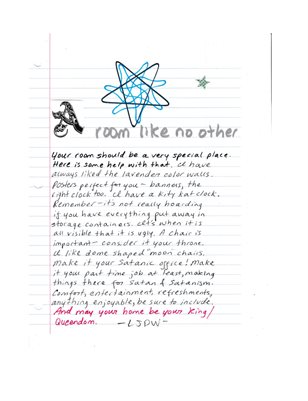 A room like no other
Your room should be a very special place.
Here is some help with that. I have
always liked the lavender color walls.
Posters perfect for you - banners, the
right clock too. I have a Kity Kat clock.
Remember - it's not really hoarding
if you have everything put away in
storage containers. Let's when it is
all visible that it is ugly. A chair is
important - consider it your throne.
I like dome shaped moon chairs.
Make it your Satanic office! Make
it your part time job at least, making
things there for Satan & Satanism.
Comfort, entertainment, refreshments,
anything enjoyable, be sure to include.
And may your home be your King/
Queendom. -LJDW-